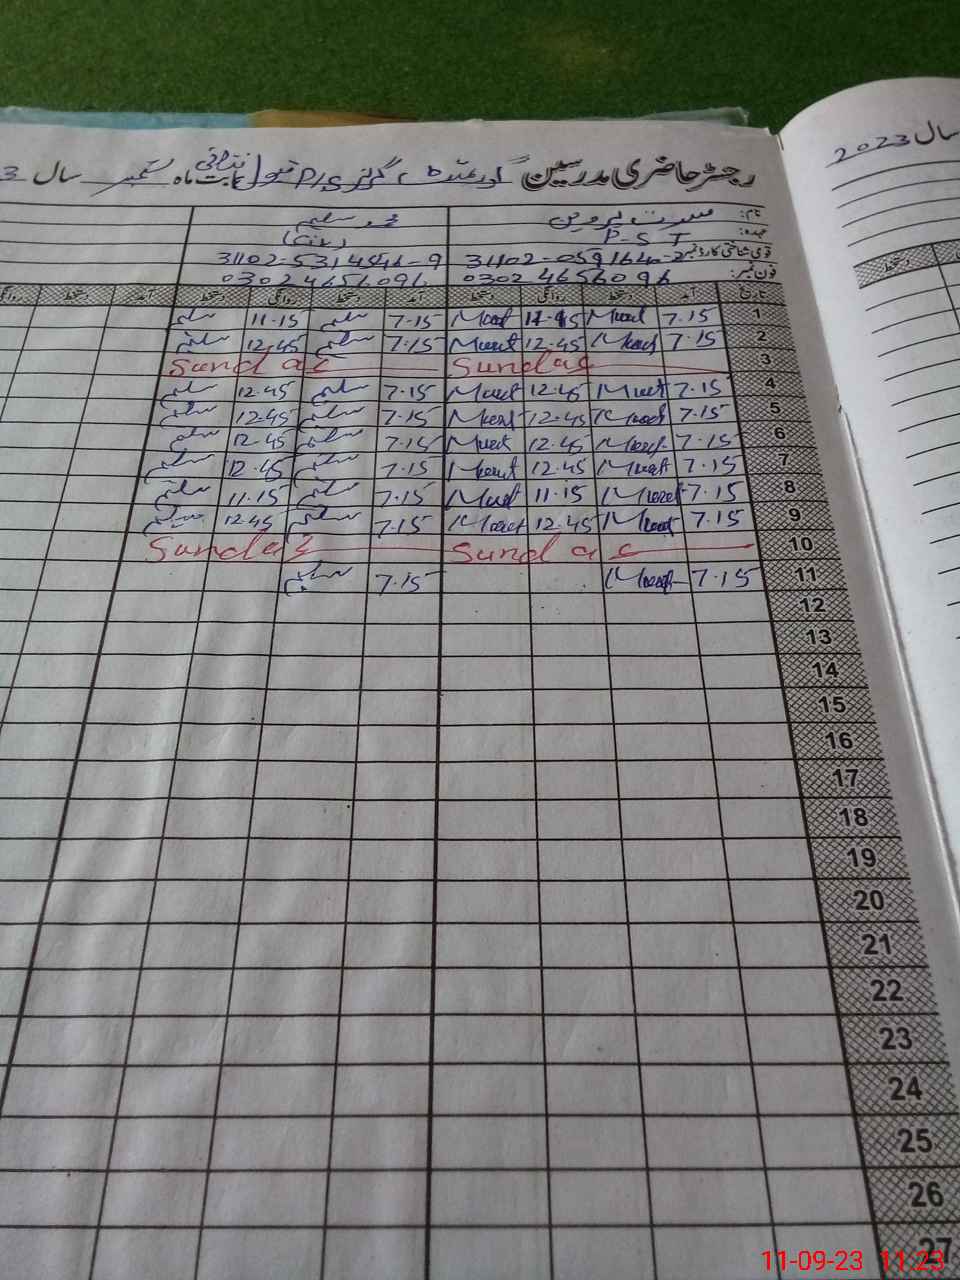 سال 2023
رجسٹر حاضری مدرسین گورنمنٹ گرلز P/S بابت ماہ ستمبر سال 3
نام: مسرت پروین محمد سلیم
عہدہ: P-S-T
قومی شناختی کارڈ نمبر: 31102-0591640-2 31102-5314546-9
فون نمبر: 03024656096 03024656096
تاریخ آمد دستخط روانگی دستخط آمد دستخط روانگی دستخط آمد دستخط
1 7.15 11.15 7.15 11.15 سلیم
2 7.15 12.45 7.15 12.45 سلیم
3 Sunday Sunday
4 7.15 12.45 7.15 سلیم 12.45 سلیم
5 7.15 12.45 7.15 سلیم 12.45 سلیم
6 7.15 12.45 7.15 سلیم 12.45 سلیم
7 7.15 12.45 7.15 سلیم 12.45 سلیم
8 7.15 11.15 7.15 سلیم 11.15 سلیم
9 7.15 12.45 7.15 سلیم 12.45 سلیم
10 Sunday Sunday
11 7.15 7.15 سلیم
12
13
14
15
16
17
18
19
20
21
22
23
24
25
26
27
11-09-23 11.23